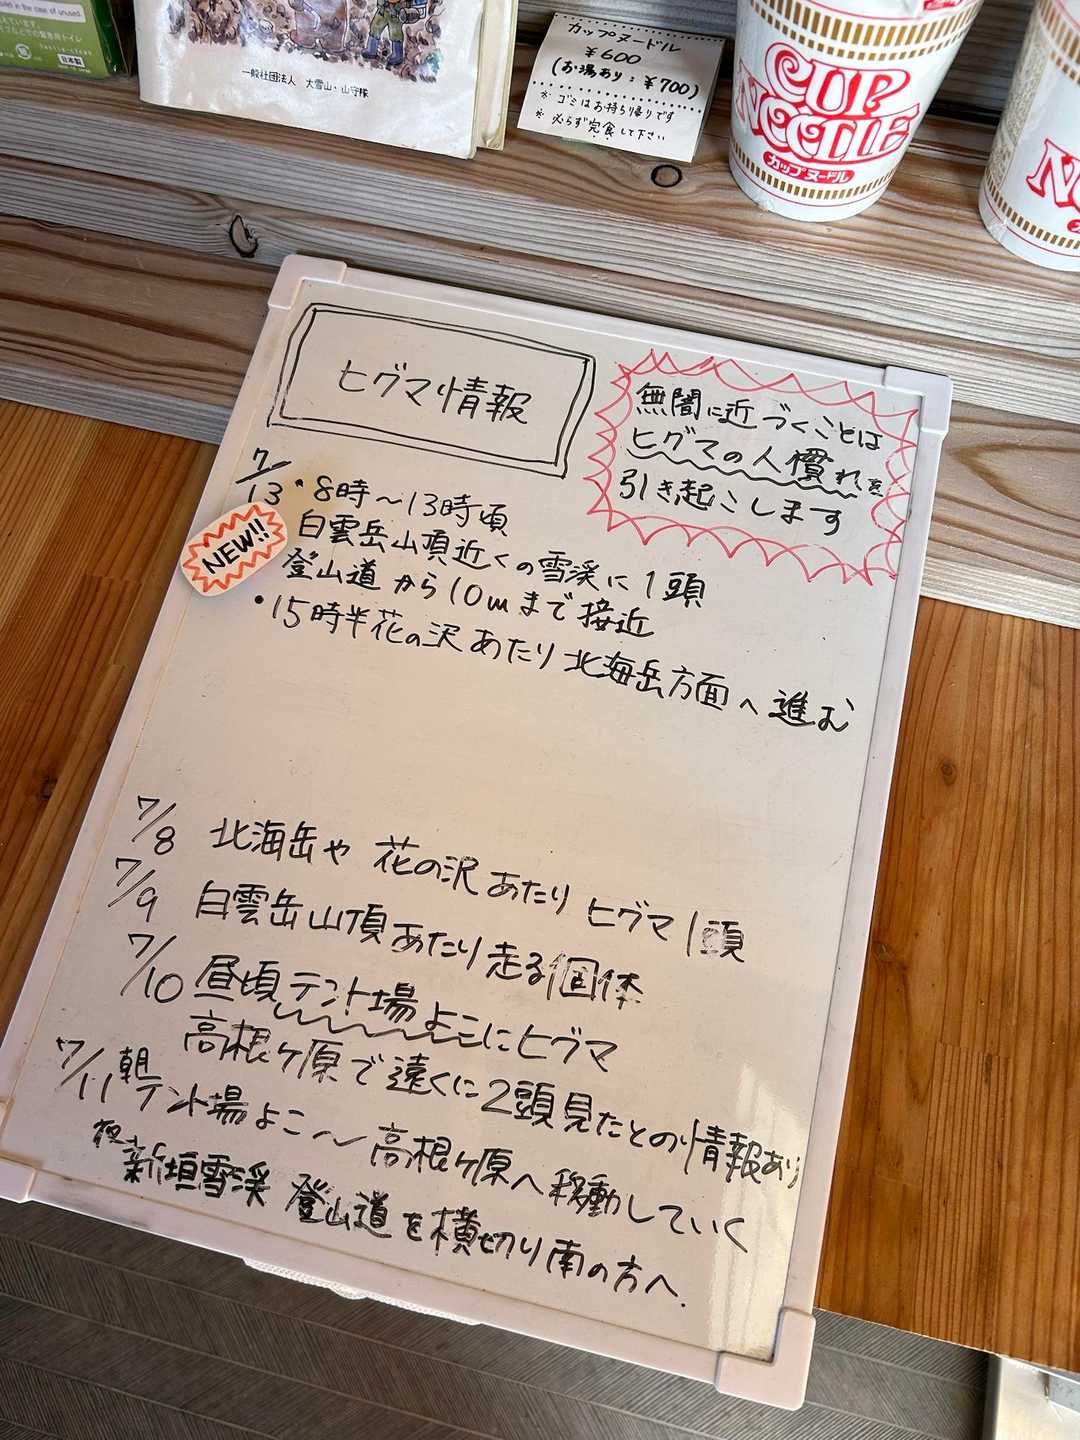 oilet in the case of unused.
日本製
一般社団法人 大雪山・山守隊
カップヌードル
¥600
(お湯あり:¥700)
※ ゴミはお持ち帰りです
※ 必らず完食して下さい
CUP
NOODLE
カップヌードル
ヒグマ情報
無闇に近づくことは
ヒグマの人慣れを
引き起こします
7/13 ・8時〜13時頃
NEW!!
白雲岳山頂近くの雪渓に1頭
登山道から10mまで接近
・15時半花の沢あたり北海岳方面へ進む
7/8 北海岳や花の沢あたりヒグマ1頭
7/9 白雲岳山頂あたり走る個体
7/10 昼頃テント場よこにヒグマ
高根ヶ原で遠くに2頭見たとの情報あり
7/11 朝テント場よこ〜高根ヶ原へ移動していく
夜 新垣雪渓 登山道を横切り南の方へ.